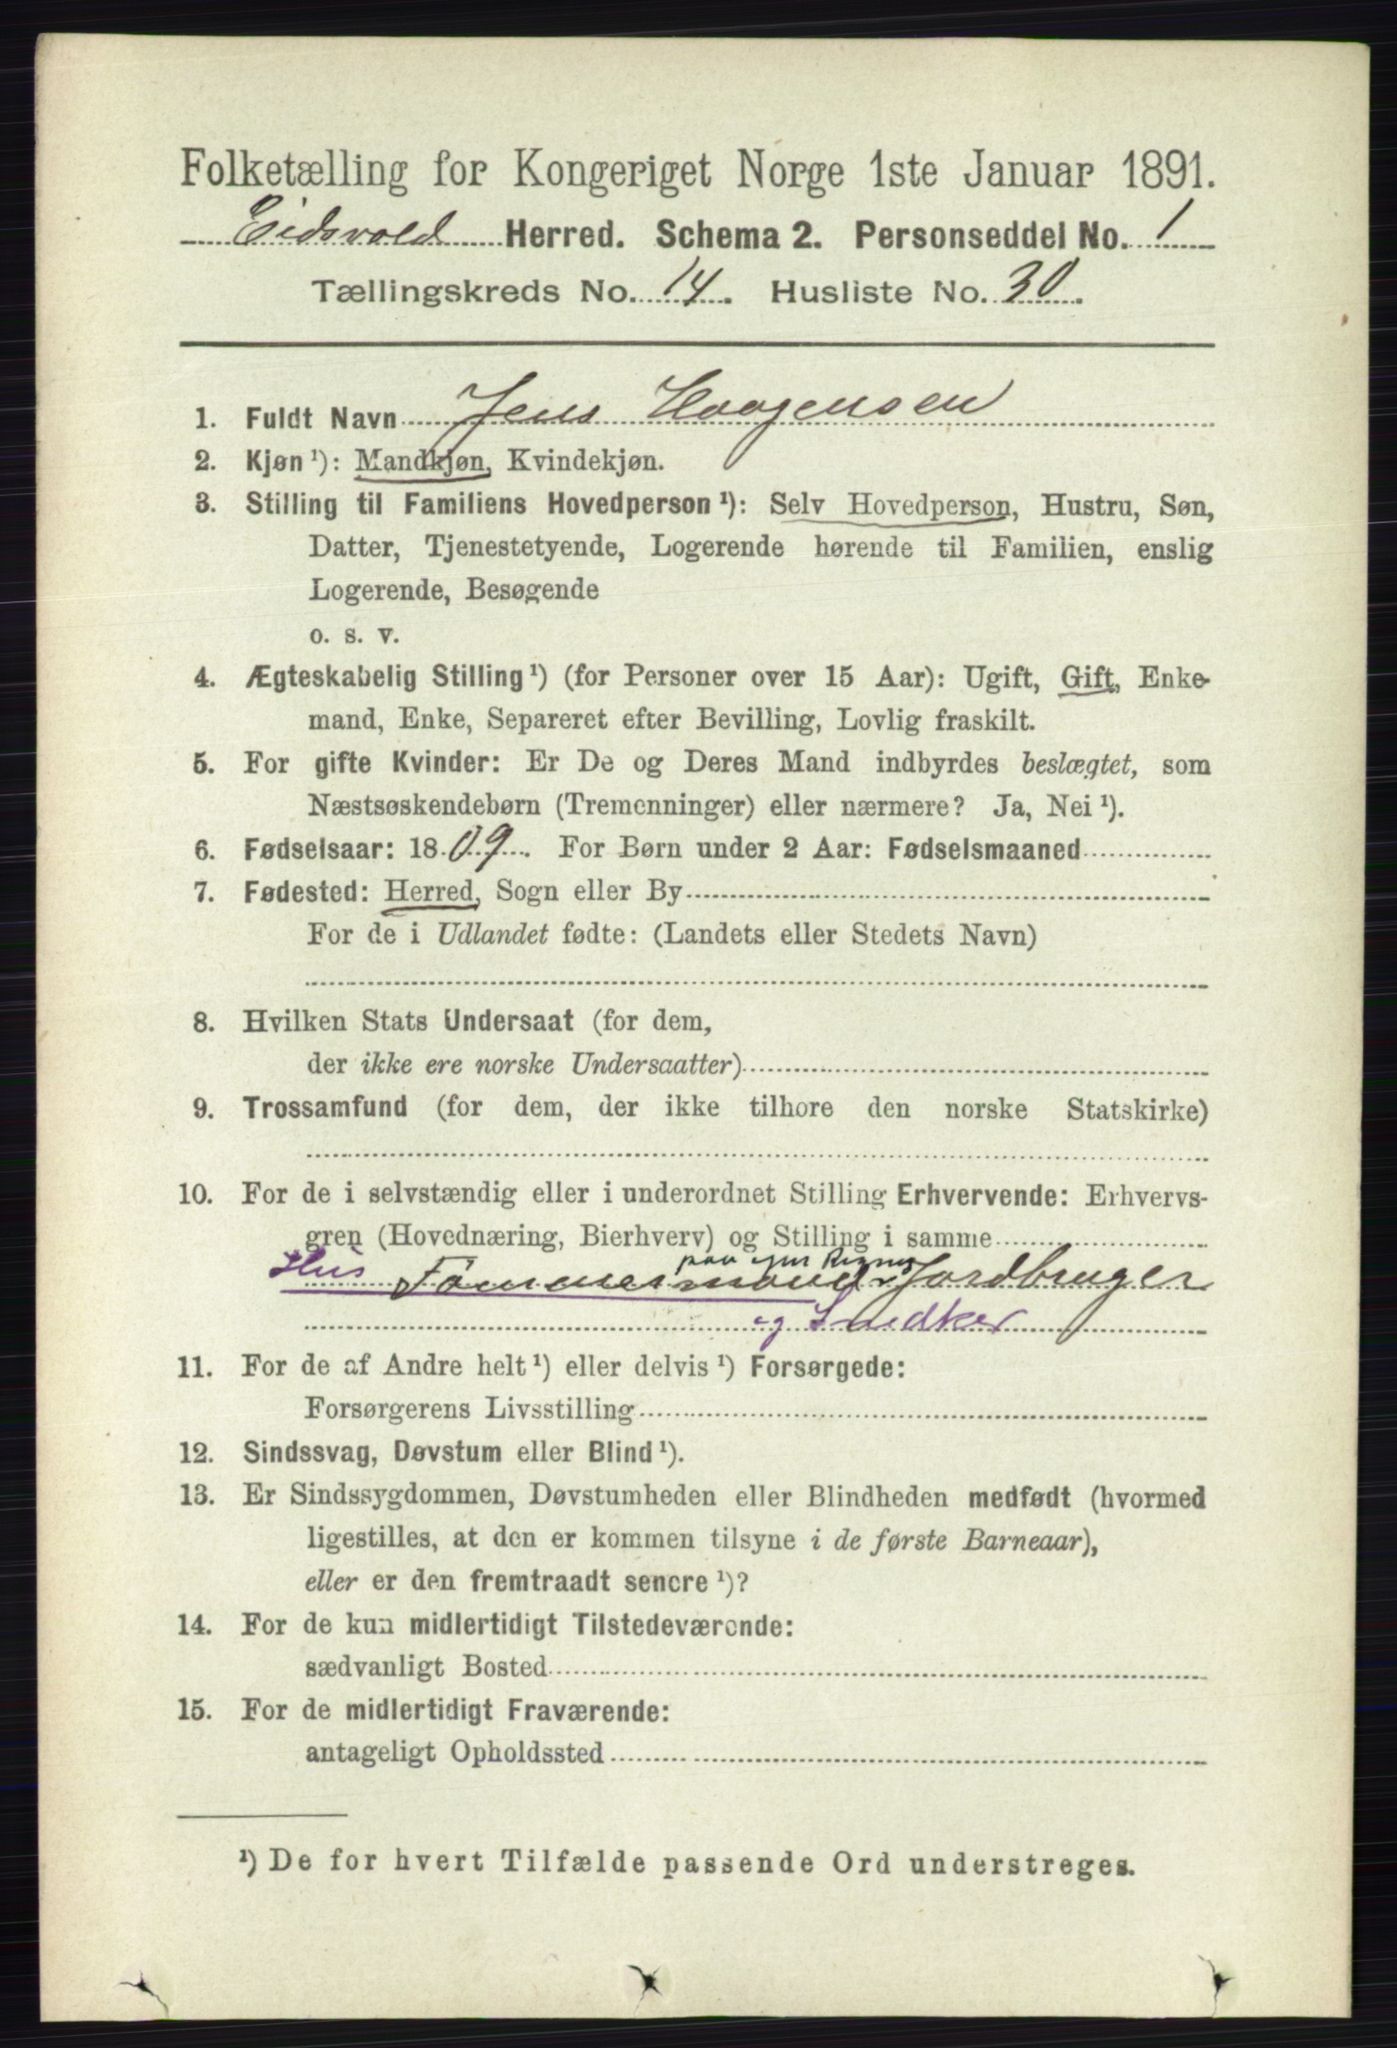 Folketælling for Kongeriget Norge 1ste Januar 1891.
Eidsvold Herred. Schema 2. Personseddel No. 1
Tællingskreds No. 14. Husliste No. 30.
1. Fuldt Navn Jens Haagensen
2. Kjøn¹): Mandkjøn, Kvindekjøn.
3. Stilling til Familiens Hovedperson¹): Selv Hovedperson, Hustru, Søn,
Datter, Tjenestetyende, Logerende hørende til Familien, enslig
Logerende, Besøgende
o. s. v.
4. Ægteskabelig Stilling¹) (for Personer over 15 Aar): Ugift, Gift, Enke-
mand, Enke, Separeret efter Bevilling, Lovlig fraskilt.
5. For gifte Kvinder: Er De og Deres Mand indbyrdes beslægtet, som
Næstsøskendebørn (Tremenninger) eller nærmere? Ja, Nei¹).
6. Fødselsaar: 1809. For Børn under 2 Aar: Fødselsmaaned
7. Fødested: Herred, Sogn eller By
For de i Udlandet fødte: (Landets eller Stedets Navn)
8. Hvilken Stats Undersaat (for dem,
der ikke ere norske Undersaatter)
9. Trossamfund (for dem, der ikke tilhore den norske Statskirke)
10. For de i selvstændig eller i underordnet Stilling Erhvervende: Erhvervs-
gren (Hovednæring, Bierhverv) og Stilling i samme
paa
Hus Tømmermand Jordbruger
og Snedker
11. For de af Andre helt¹) eller delvis¹) Forsørgede:
Forsørgerens Livsstilling
12. Sindssvag, Døvstum eller Blind¹).
13. Er Sindssygdommen, Døvstumheden eller Blindheden medfødt (hvormed
ligestilles, at den er kommen tilsyne i de første Barneaar),
eller er den fremtraadt senere¹)?
14. For de kun midlertidigt Tilstedeværende:
sædvanligt Bosted
15. For de midlertidigt Fraværende:
antageligt Opholdssted
¹) De for hvert Tilfælde passende Ord understreges.